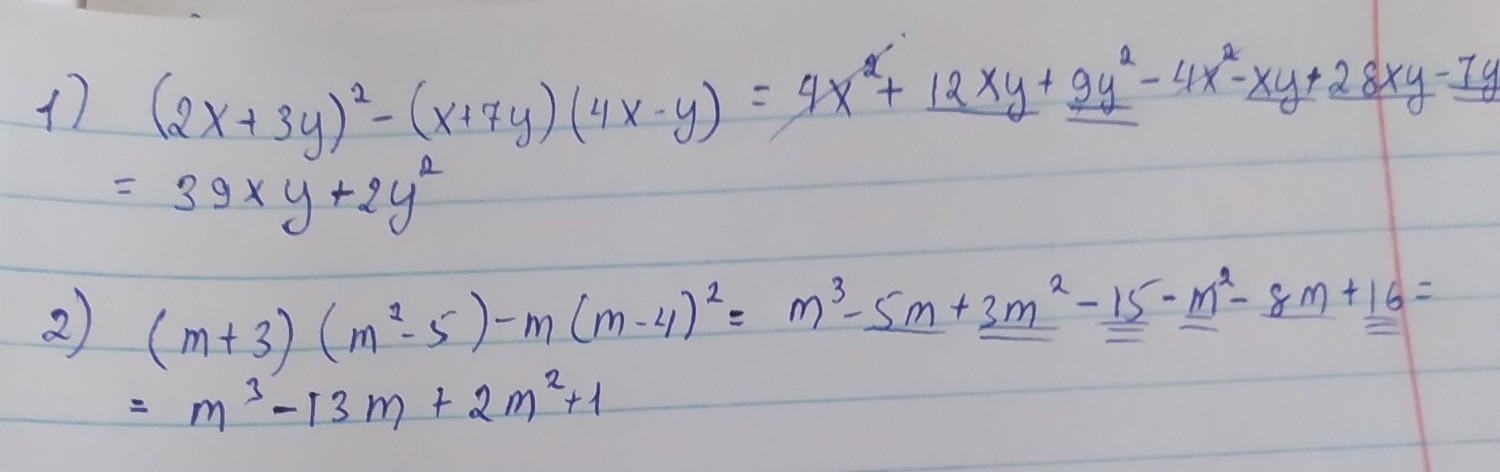 1) (2x+3y)² - (x+7y)(4x-y) = 4x² + 12xy + 9y² - 4x² - xy + 28xy - 7y
= 39xy + 2y²
2) (m+3)(m²-5) - m(m-4)² = m³ - 5m + 3m² - 15 - m² - 8m + 16 =
= m³ - 13m + 2m² + 1